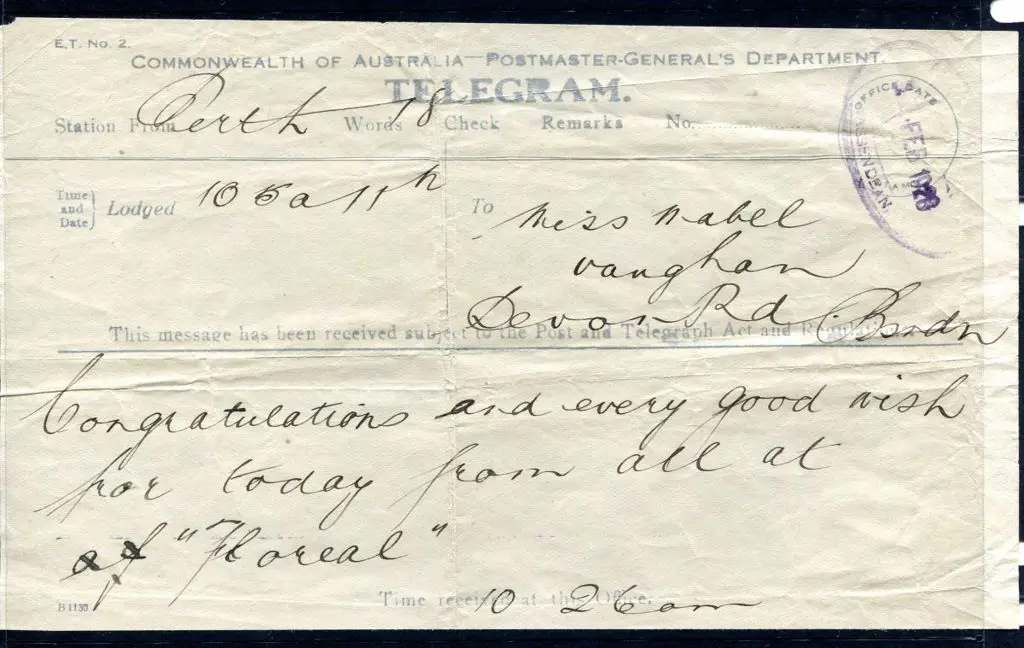 E.T. No. 2.
COMMONWEALTH OF AUSTRALIA—POSTMASTER-GENERAL'S DEPARTMENT.
TELEGRAM.
Station From Perth Words 18 Check Remarks No.
Time and Date } Lodged 10 5a 11th To Miss Mabel
Vaughan
Devon Rd
This message has been received subject to the Post and Telegraph Act and
Congratulations and every good wish
for today from all at
"Floreal"
Time received at this Office. 10 26am
B1130
OFFICE DATE
FEB 1928